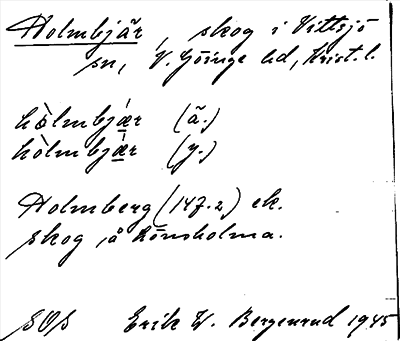 Holmbjär, skog i Vittsjö
sn, V. Göinge hd, Krist. l.
hòlmbjǽr (ä.)
hòlmbjær (y.)
Holmberg (147.2) ek.
skog, å Rönsholma.
SOS Erik W. Bergenrud 1945